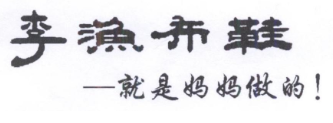 李渔布鞋
—就是妈妈做的！